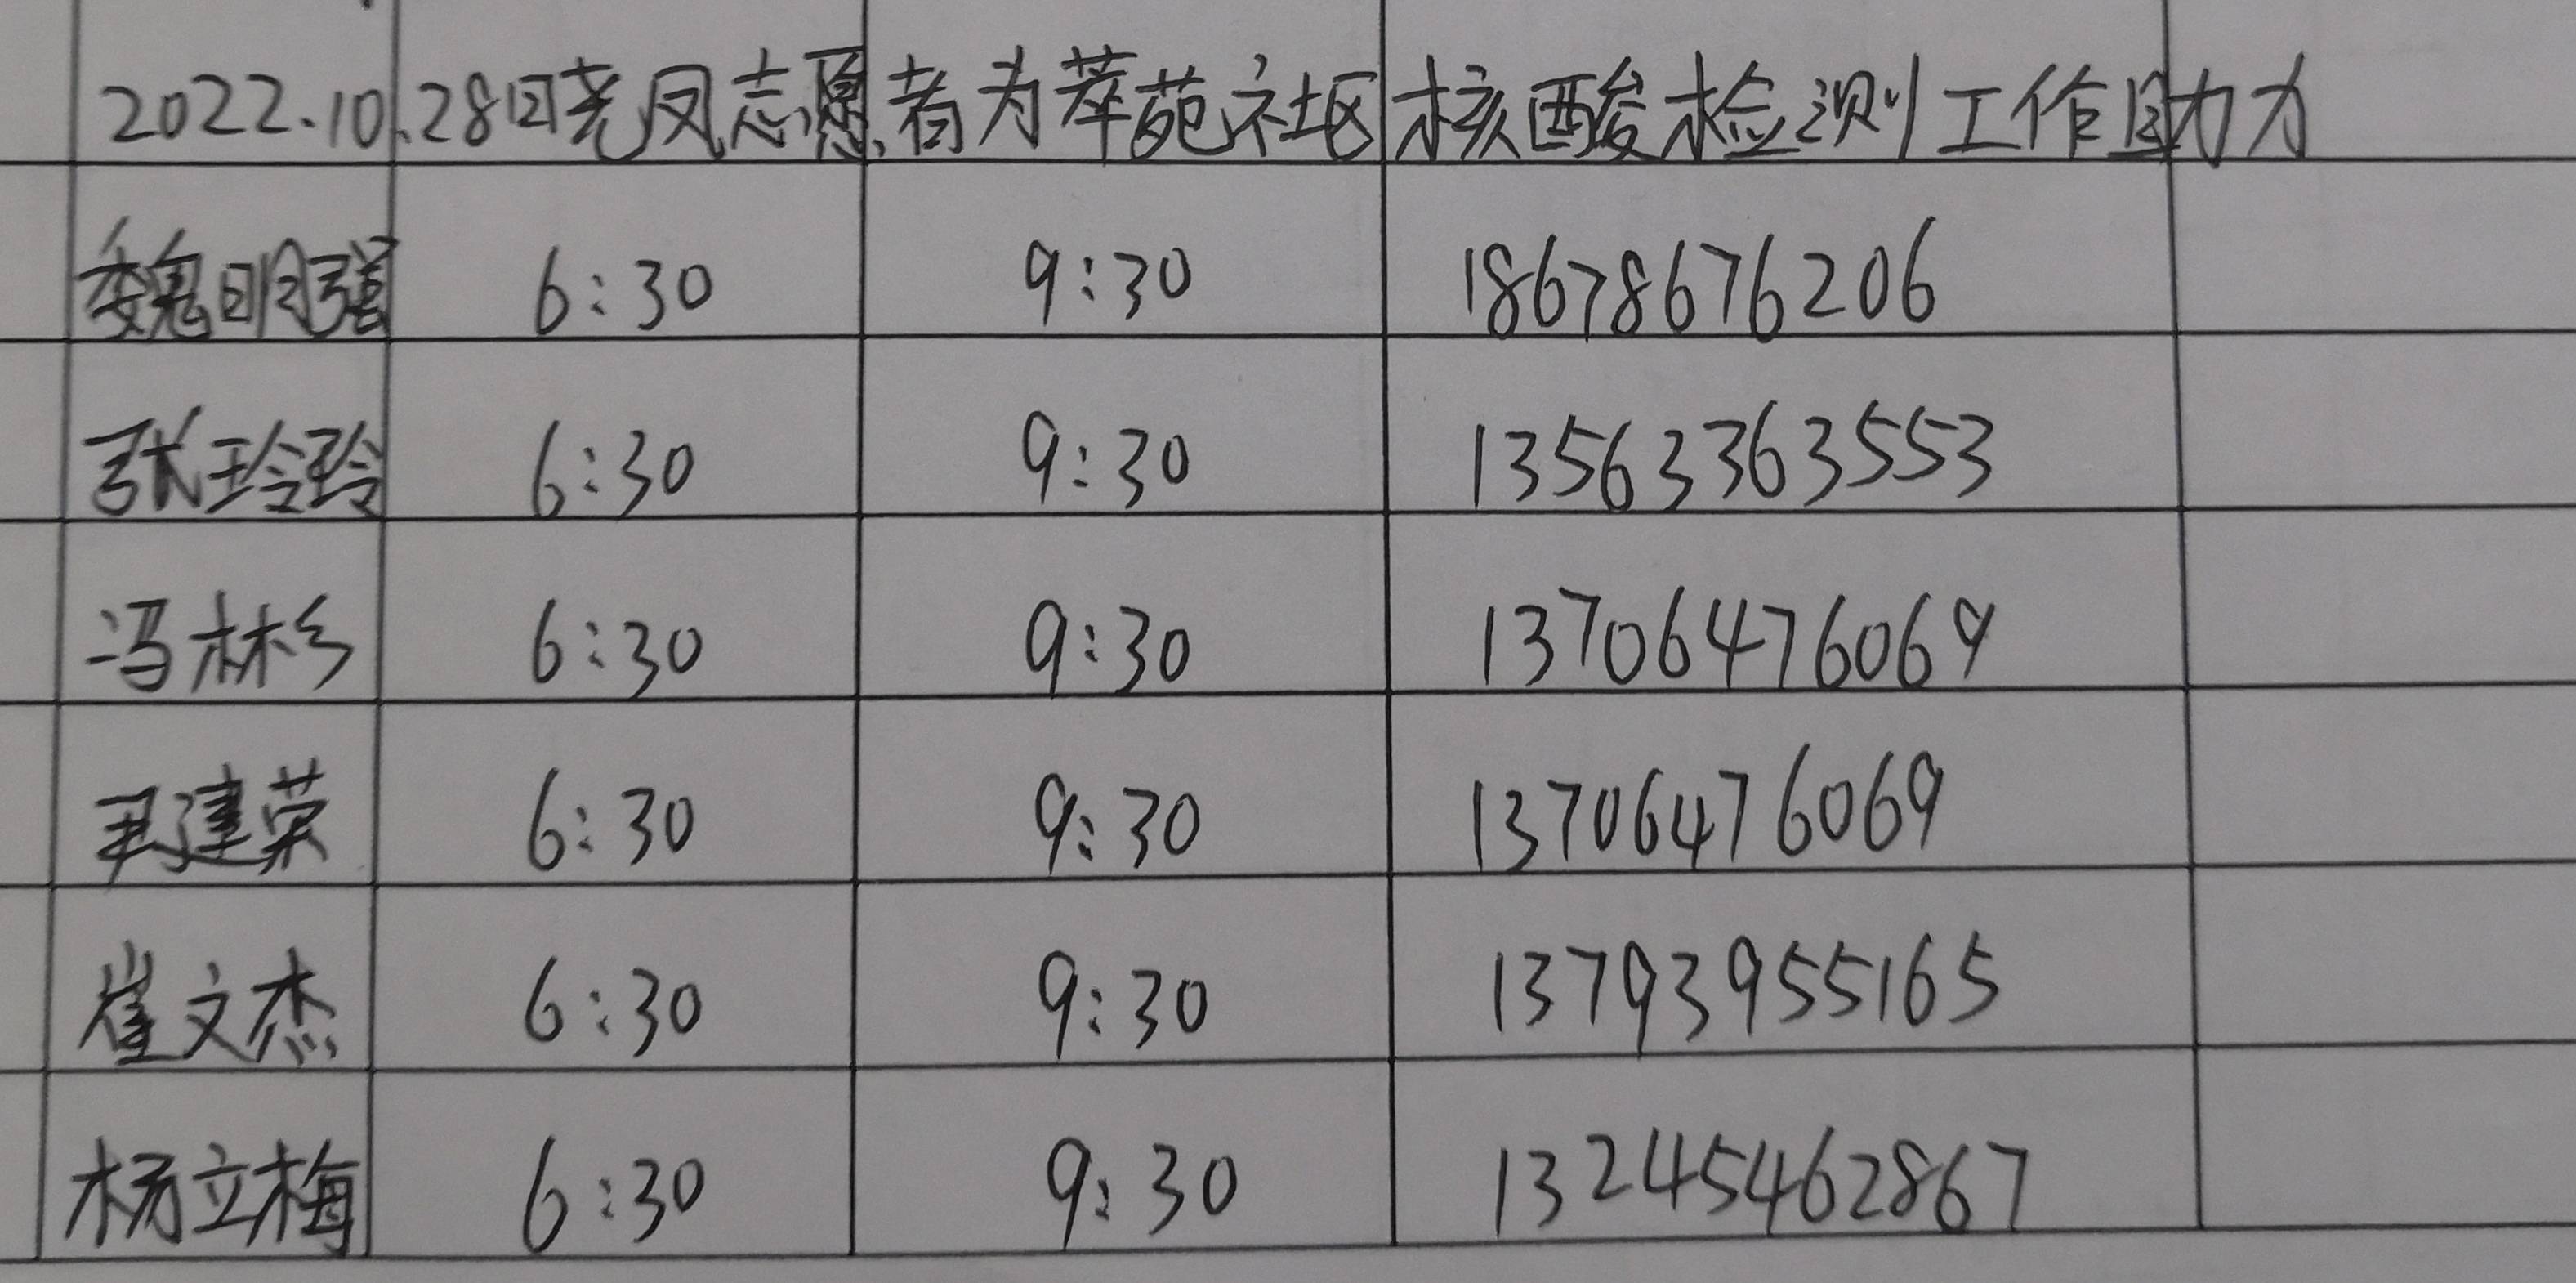 2022.10.28日尧凤志愿者为萃苑社区核酸检测工作助力
魏明强 6:30 9:30 18678676206
张玲玲 6:30 9:30 13563363553
冯彬 6:30 9:30 13706476069
尹建荣 6:30 9:30 13706476069
崔文杰 6:30 9:30 13793955165
杨立梅 6:30 9:30 13245462867